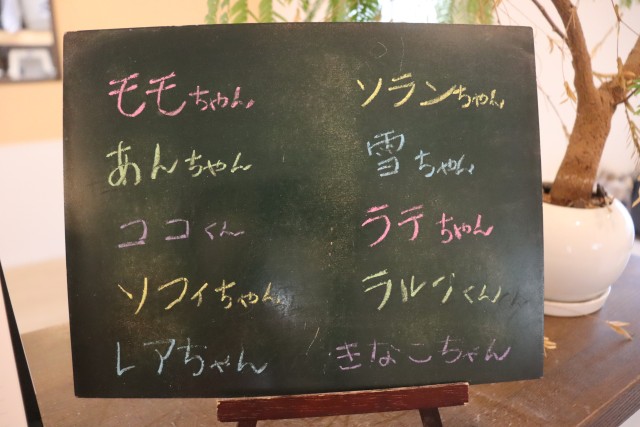 モモちゃん
あんちゃん
ココくん
ソフィちゃん
レアちゃん
ソランちゃん
雪ちゃん
ラテちゃん
ラルゴくん
きなこちゃん